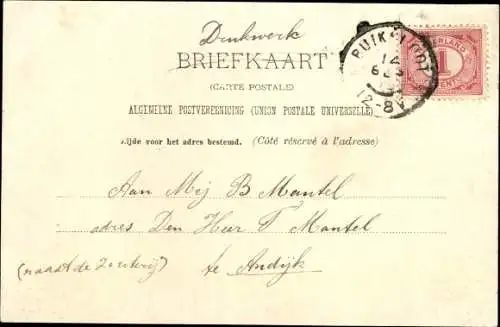 Drukwerk
BRIEFKAART
(CARTE POSTALE)
ALGEMEENE POSTVEREENIGING (UNION POSTALE UNIVERSELLE)
Zijde voor het adres bestemd. (Côté réservé à l'adresse)
BUIKSLOOT
14
12-8V
NEDERLAND
1
CENT
Aan Mej B Mantel
adres Den Heer T Mantel
te Andijk
(naast de